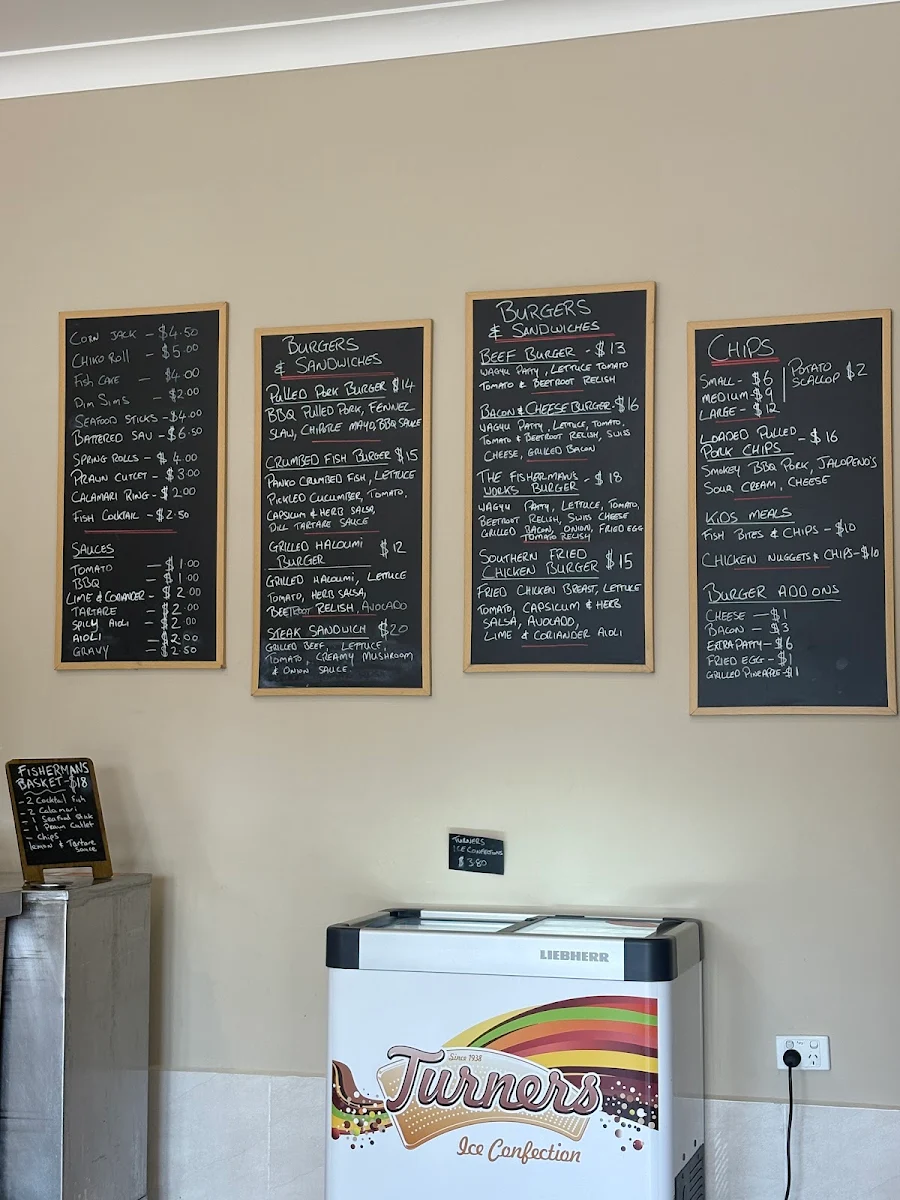 CORN JACK - $4.50
CHIKO ROLL - $5.00
FISH CAKE - $4.00
DIM SIMS - $2.00
SEAFOOD STICKS - $4.00
BATTERED SAV - $6.50
SPRING ROLLS - $4.00
PRAWN CUTLET - $3.00
CALAMARI RING - $2.00
FISH COCKTAIL - $2.50
SAUCES
TOMATO - $1.00
BBQ - $1.00
LIME & CORIANDER - $2.00
TARTARE - $2.00
SPICY AIOLI - $2.00
AIOLI - $2.00
GRAVY - $2.50
BURGERS
& SANDWICHES
PULLED PORK BURGER $14
BBQ PULLED PORK, FENNEL
SLAW, CHIPOTLE MAYO, BBQ SAUCE
CRUMBED FISH BURGER $15
PANKO CRUMBED FISH, LETTUCE
PICKLED CUCUMBER, TOMATO,
CAPSICUM & HERB SALSA,
DILL TARTARE SAUCE
GRILLED HALOUMI $12
BURGER
GRILLED HALOUMI, LETTUCE
TOMATO, HERB SALSA,
BEETROOT RELISH, AVOCADO
STEAK SANDWICH $20
GRILLED BEEF, LETTUCE,
TOMATO, CREAMY MUSHROOM
& ONION SAUCE
BURGERS
& SANDWICHES
BEEF BURGER - $13
WAGYU PATTY, LETTUCE TOMATO
TOMATO & BEETROOT RELISH
BACON & CHEESE BURGER - $16
WAGYU PATTY, LETTUCE, TOMATO,
TOMATO & BEETROOT RELISH, SWISS
CHEESE, GRILLED BACON
THE FISHERMANS - $18
WORKS BURGER
WAGYU PATTY, LETTUCE, TOMATO,
BEETROOT RELISH, SWISS CHEESE
GRILLED BACON, ONION, FRIED EGG
TOMATO RELISH
SOUTHERN FRIED
CHICKEN BURGER $15
FRIED CHICKEN BREAST, LETTUCE
TOMATO, CAPSICUM & HERB
SALSA, AVOCADO,
LIME & CORIANDER AIOLI
CHIPS
SMALL - $6
MEDIUM - $9
LARGE - $12
POTATO $2
SCALLOP
LOADED PULLED
PORK CHIPS - $16
SMOKEY BBQ PORK, JALOPENO'S
SOUR CREAM, CHEESE
KIDS MEALS
FISH BITES & CHIPS - $10
CHICKEN NUGGETS & CHIPS - $10
BURGER ADD ONS
CHEESE - $1
BACON - $3
EXTRA PATTY - $6
FRIED EGG - $1
GRILLED PINEAPPLE - $1
FISHERMANS
BASKET - $18
- 2 Cocktail Fish
- 2 Calamari
- 1 Seafood Stick
- 1 Prawn Cutlet
- Chips
lemon & Tartare
Sauce
TURNERS
ICE CONFECTIONS
$3.80
LIEBHERR
Since 1938
Turners
Ice Confection